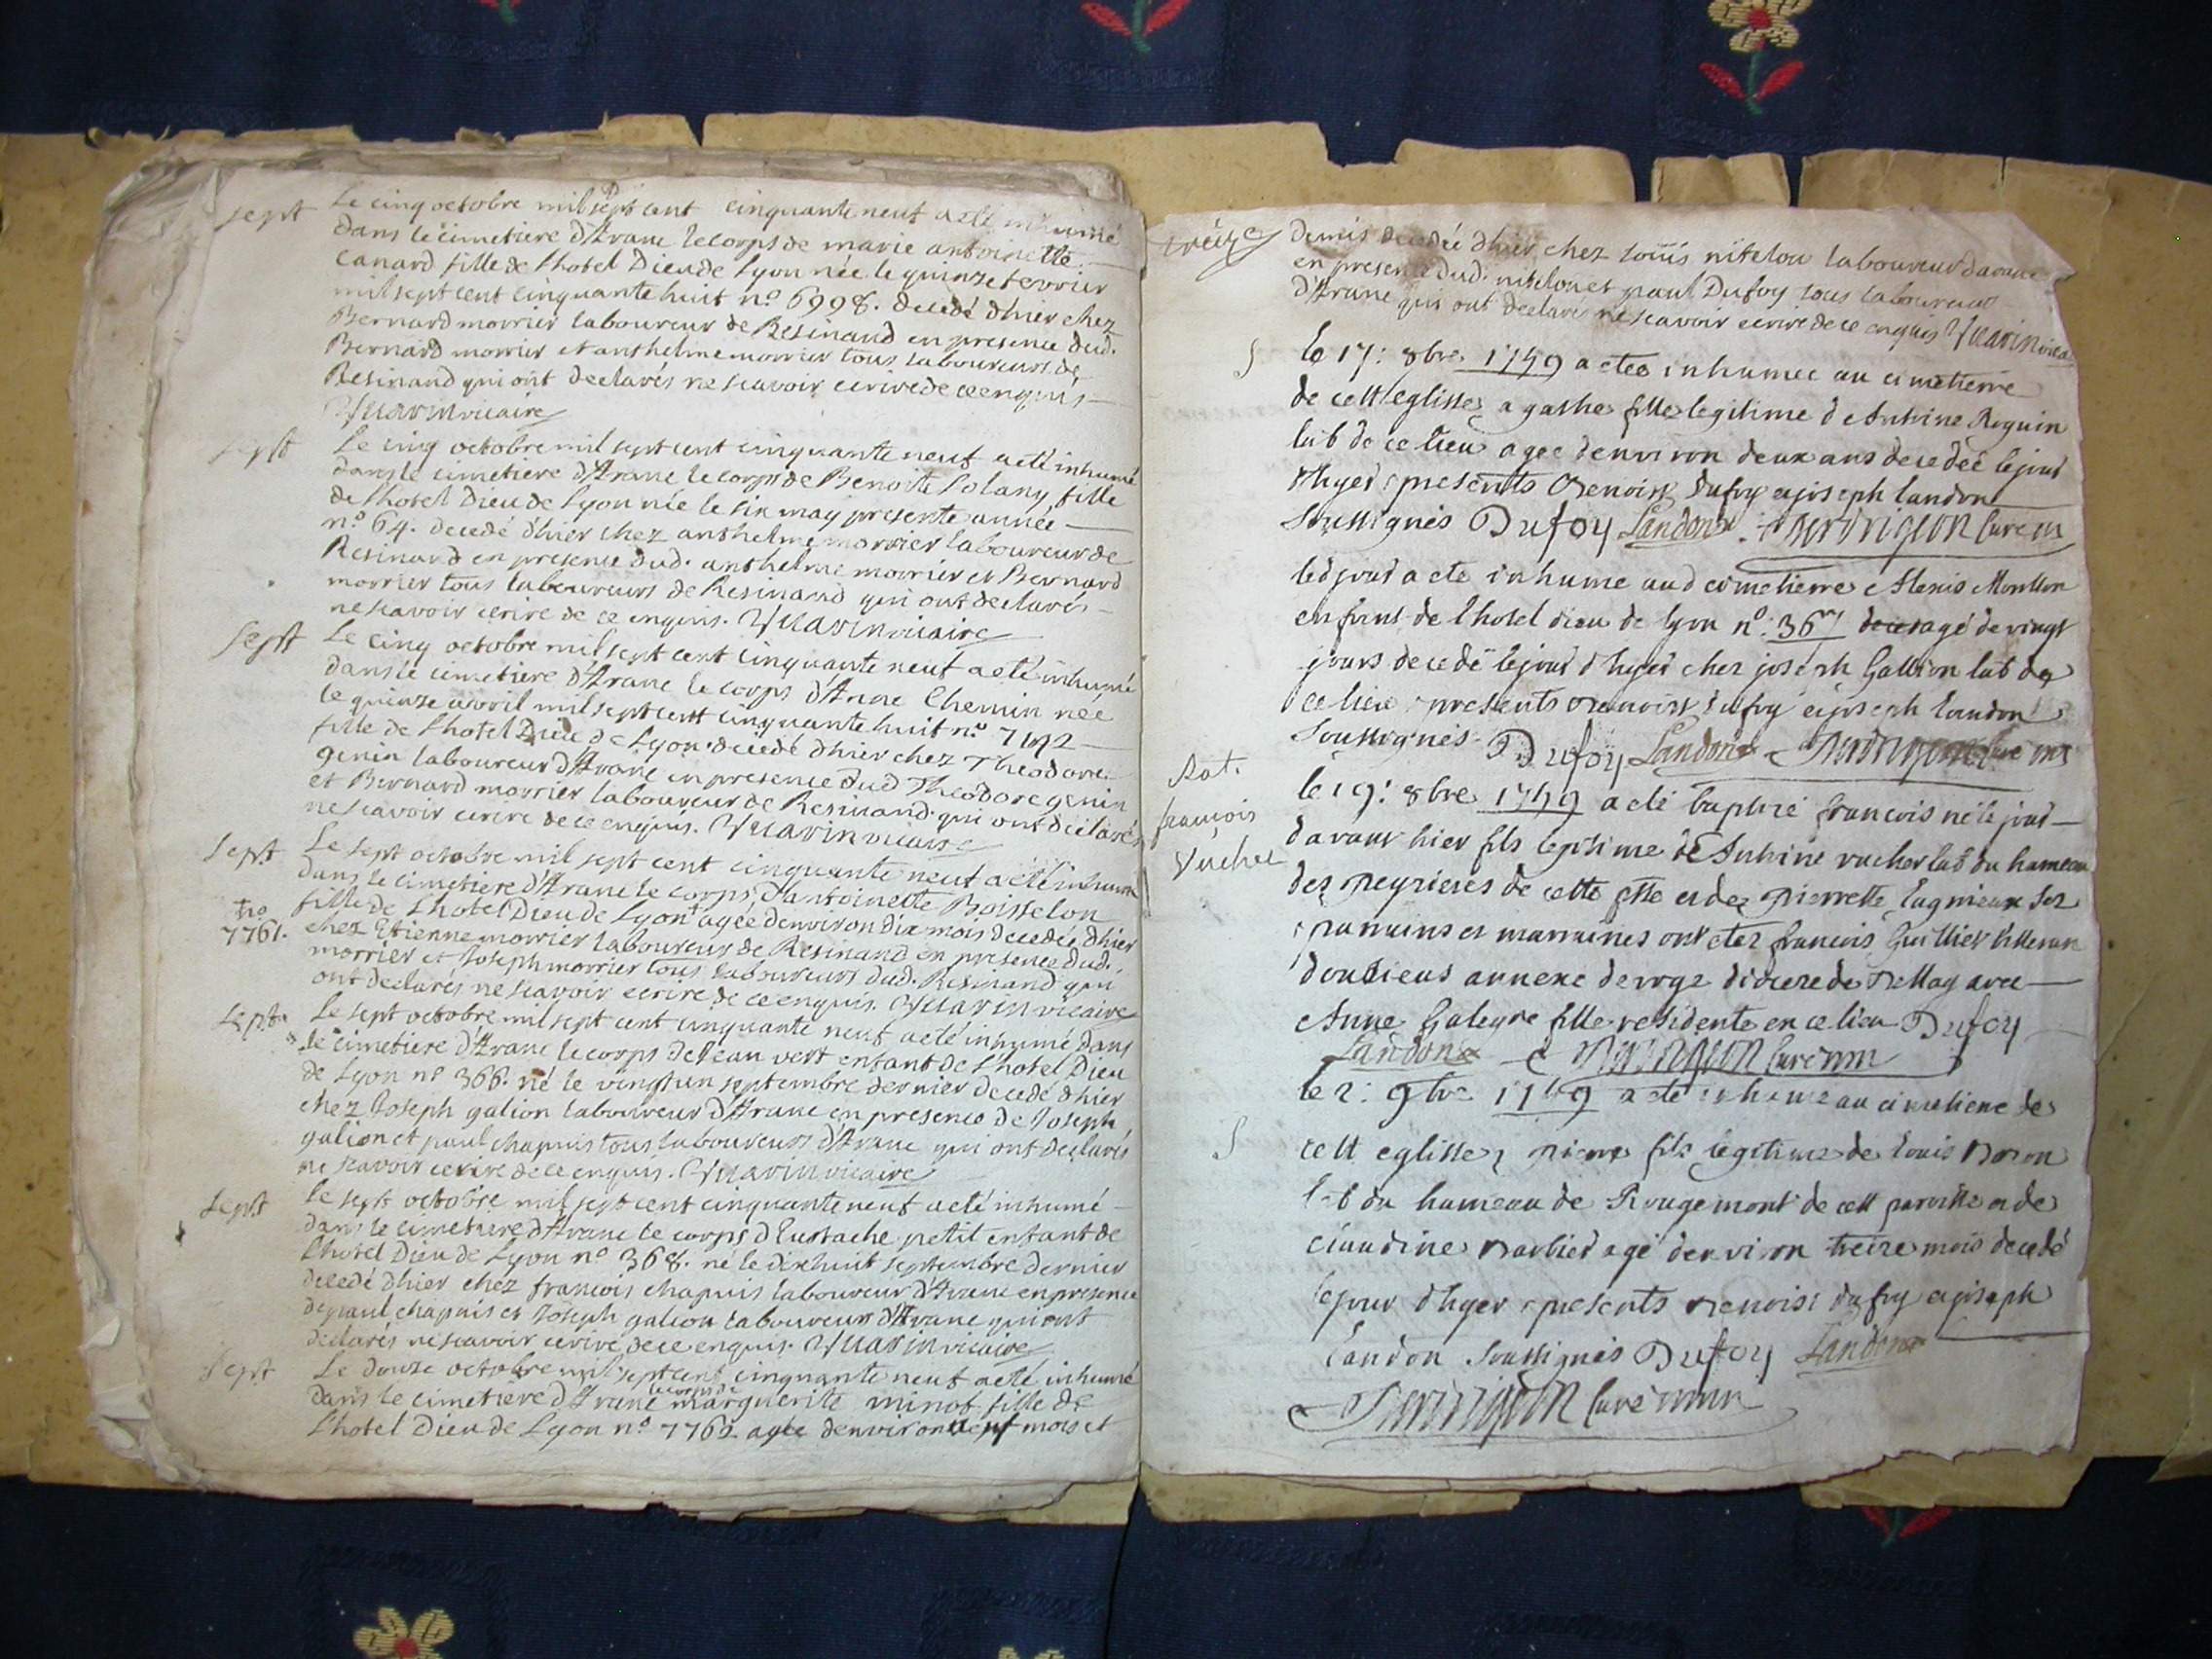 sept
Le cinq octobre mil sept cent cinquante neuf a esté inhumé
dans le cimetiere d'Arane le corps de marie antoinette
canard fille de l'hotel Dieu de Lyon née le quinze fevrier
mil sept cent cinquante huit n.º 6998. decedé d'hier chez
Bernard morrier laboureur de Resinand en presence dud.
Bernard morrier et anthelme morrier tous laboureurs de
Resinand qui ont declarés ne scavoir ecrire de ce enquis
Vuarin vicaire
sept
Le cinq octobre mil sept cent cinquante neuf a eté inhumé
dans le cimetiere d'Arane le corps de Benoite Polany fille
de l'hotel Dieu de Lyon née le six may presente année
n.º 64. decedé d'hier chez anthelme morrier laboureur de
Resinand en presence dud. anthelme morrier et Bernard
morrier tous laboureurs de Resinand qui ont declarés
ne scavoir ecrire de ce enquis. Vuarin vicaire
Sept
Le cinq octobre mil sept cent cinquante neuf a eté inhumé
dans le cimetiere d'Arane le corps d'Anne Chemin née
le quinze avril mil sept cent cinquante huit n.º
fille de l'hotel Dieu de Lyon. decedé d'hier chez Theodore
genin laboureur d'Arane en presence dud Theodore genin
et Bernard morrier laboureur de Resinand qui ont declarés
ne scavoir ecrire de ce enquis. Vuarin vicaire
Sept
Le sept octobre mil sept cent cinquante neuf a eté inhumé
dans le cimetiere d'Arane le corps d'antoinette Boisselon
fille de l'hotel Dieu de Lyon + agée d'environ dix mois decedée d'hier
+ no
7761.
chez Etienne morrier laboureur de Resinand en presence dud.
morrier et Joseph morrier tous laboureurs dud. Resinand qui
ont declarés ne scavoir ecrire de ce enquis. Vuarin vicaire
Sept.
Le sept octobre mil sept cent cinquante neuf a eté inhumé dans
le cimetiere d'Arane le corps de Jean vert enfant de l'hotel Dieu
de Lyon nº 366. né le vingt un septembre dernier decedé d'hier
chez Joseph galion laboureur d'Arane en presence de Joseph
galion et paul chapuis tous laboureurs d'Arane qui ont declarés
ne scavoir ecrire de ce enquis. Vuarin vicaire
Sept
Le sept octobre mil sept cent cinquante neuf a eté inhumé
dans le cimetiere d'Arane le corps d'Eustache petit enfant de
l'hotel Dieu de Lyon nº 368. né le dixhuit septembre dernier
decedé d'hier chez françois chapuis laboureur d'Arane en presence
de paul chapuis et Joseph galion laboureurs d'Arane qui ont
declarés ne scavoir ecrire de ce enquis. Vuarin vicaire
Sept
Le douze octobre mil sept cent cinquante neuf a eté inhumé
dans le cimetiere d'Arane le corps de marguerite minot fille de
l'hotel Dieu de Lyon nº 7762 agée d'environ neuf mois et
demis decedée d'hier chez louis nitelou laboureur d'arane
en presence dud. nitelou et paul Dufoy tous laboureurs
d'Arane qui ont declarés ne scavoir ecrire de ce enquis Vuarin vicaire
S
le 17: 8bre 1749 a eté inhumee au cimetierre
de cett eglisse agathe fille legitime de Antoine Roguin
lab de ce lieu agee denviron deux ans decedée le jour
dhyer presents Benoist dufoy et joseph landon
soussignés Dufoy Landon curé
led jour a eté inhumé aud cimetierre Alexis
enfant de lhotel dieu de lyon nº: 36 agé de vingt
jours decedé le jour dhyer chez joseph Gallion lab de
ce lieu presents Benoist dufoy et joseph landon
soussignés Dufoy Landon curé
Bat.
françois
Vucher
le 19: 8bre 1749 a eté baptisé francois né le jour
davant hier fils legitime de Antoine vucher lab du hameau
des peyrieres de cette et de pierrette Lagnieux ses
parrains et marraines ont eté francois Guillier
annexe de diocese de Bellay avec
Anne Galegre fille residente en ce lieu Dufoy
Landon curé
le 2: 9bre 1749 a eté inhumé au cimetiere de
S
cett eglisse pierre fils legitime de louis Boron
lab du hameau de Rougemont de cett paroisse et de
claudine Barbier agé denviron treize mois decedé
le jour dhyer presents Benoist dufoy et joseph
landon soussignés Dufoy Landon
curé